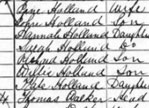 Jane Holland Wife
John Holland Son
Hannah Holland Daughter
Sarah Holland Do
Richard Holland Son
Willie Holland Son
Kate Holland Daughter
Thomas Barker Head